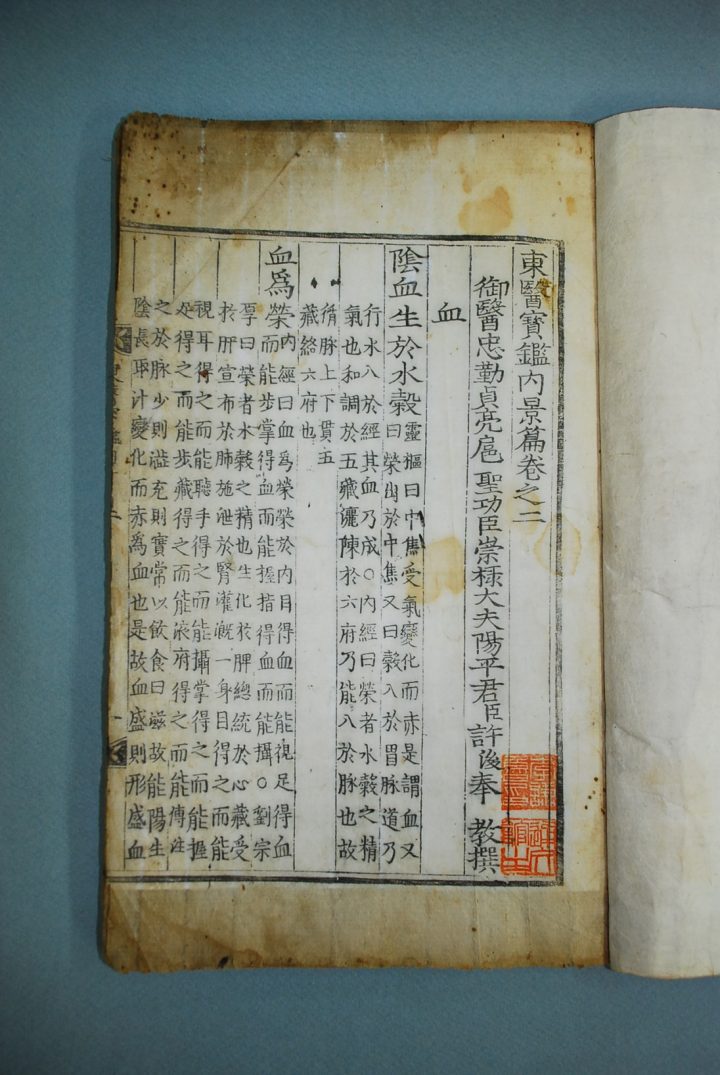 東醫寶鑑內景篇卷之二
御醫忠勤貞亮扈 聖功臣崇祿大夫陽平君臣許浚奉 教撰
血
陰血生於水穀
靈樞曰中焦受氣變化而赤是謂血又
曰榮出於中焦又曰穀入於胃脉道乃
行水入於經其血乃成○內經曰榮者水穀之精
氣也和調於五藏灑陳於六府乃能入於脉也故
循脉上下貫五
藏絡六府也
血爲榮
內經曰血爲榮榮於內目得血而能視足得血
而能步掌得血而能握指得血而能攝○劉宗
厚曰榮者水穀之精也生化於脾總統於心藏受
於肝宣布於肺施泄於腎灌漑一身目得之而能
視耳得之而能聽手得之而能攝掌得之而能握
足得之而能步藏得之而能液府得之而能傳
之於脉少則澁充則實常以飮食日滋故能陽生
陰長取汁變化而赤爲血也是故血盛則形盛血